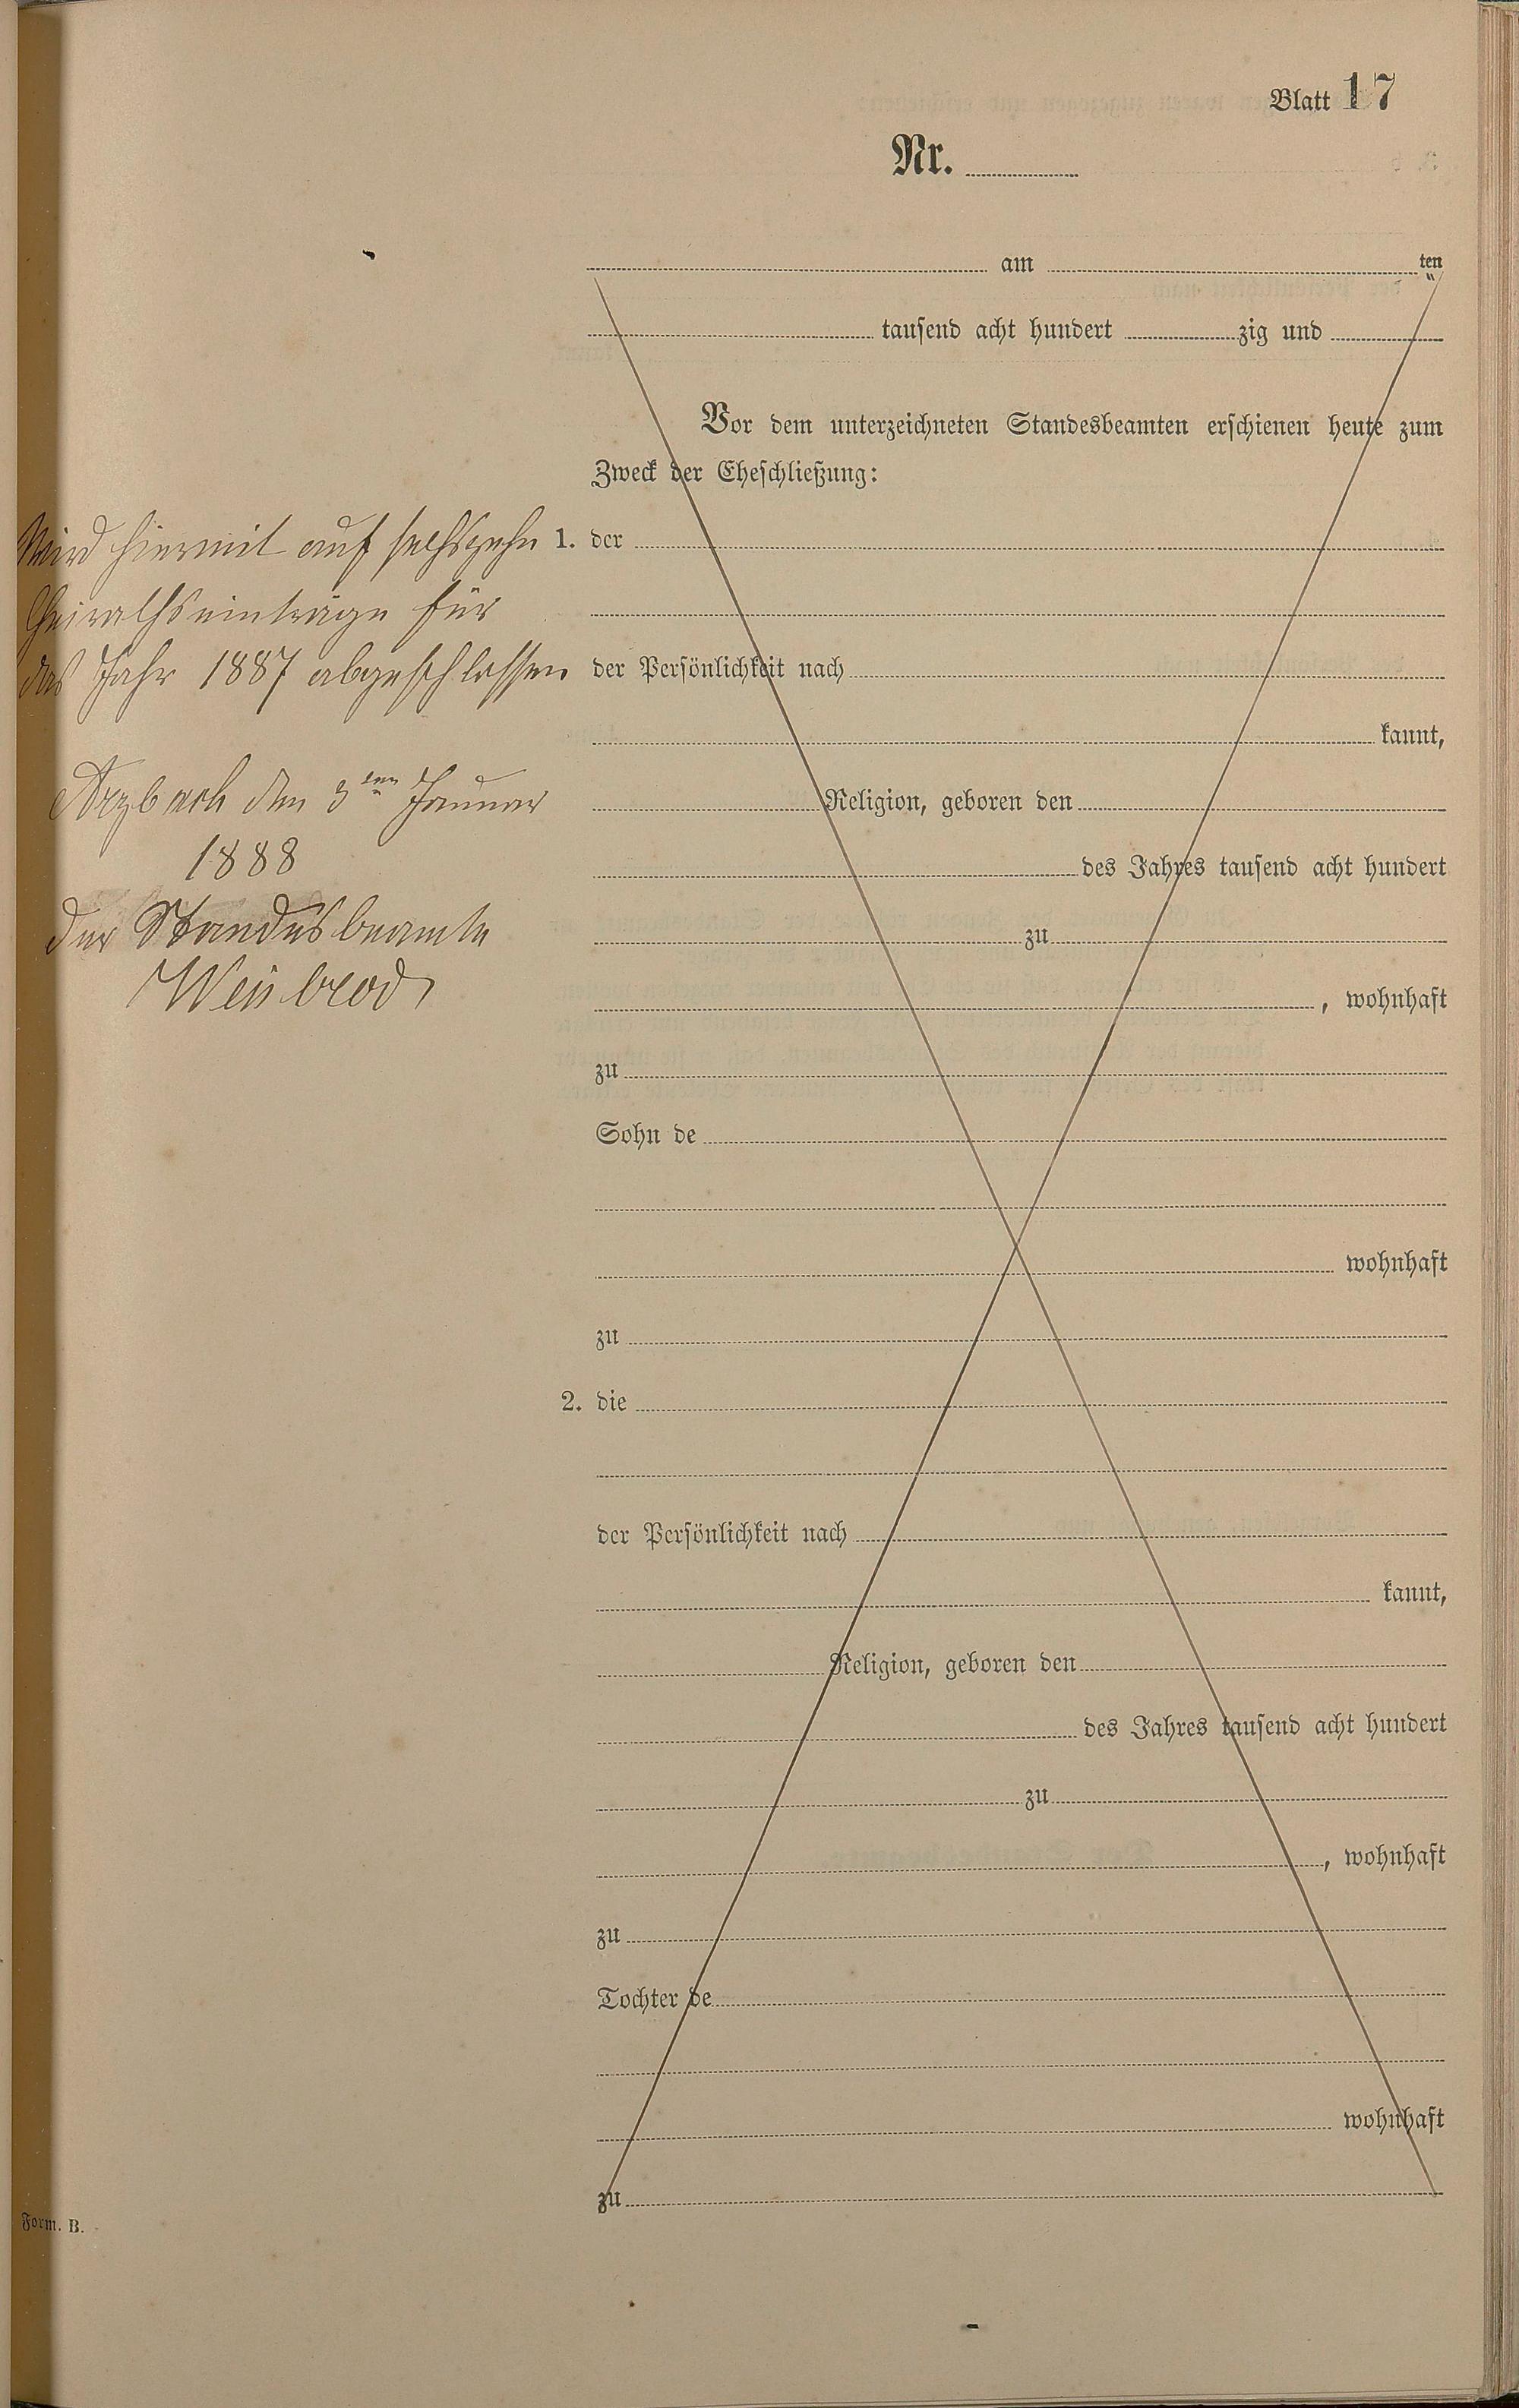 Blatt 17
Nr.
am ten
tausend acht hundert zig und
Vor dem unterzeichneten Standesbeamten erschienen heute zum
Zweck der Eheschließung:
Wird hiermit auf sechszehn
Heirathseinträge für
das Jahr 1887 abgeschlossen
Arzbach den 3ten Januar
1888
Der Standesbeamte
1. der
der Persönlichkeit nach
kannt,
Religion, geboren den
des Jahres tausend acht hundert
zu
, wohnhaft
zu
Sohn de
wohnhaft
zu
2. die
der Persönlichkeit nach
kannt,
Religion, geboren den
des Jahres tausend acht hundert
zu
, wohnhaft
zu
Tochter de
wohnhaft
zu
Form. B.